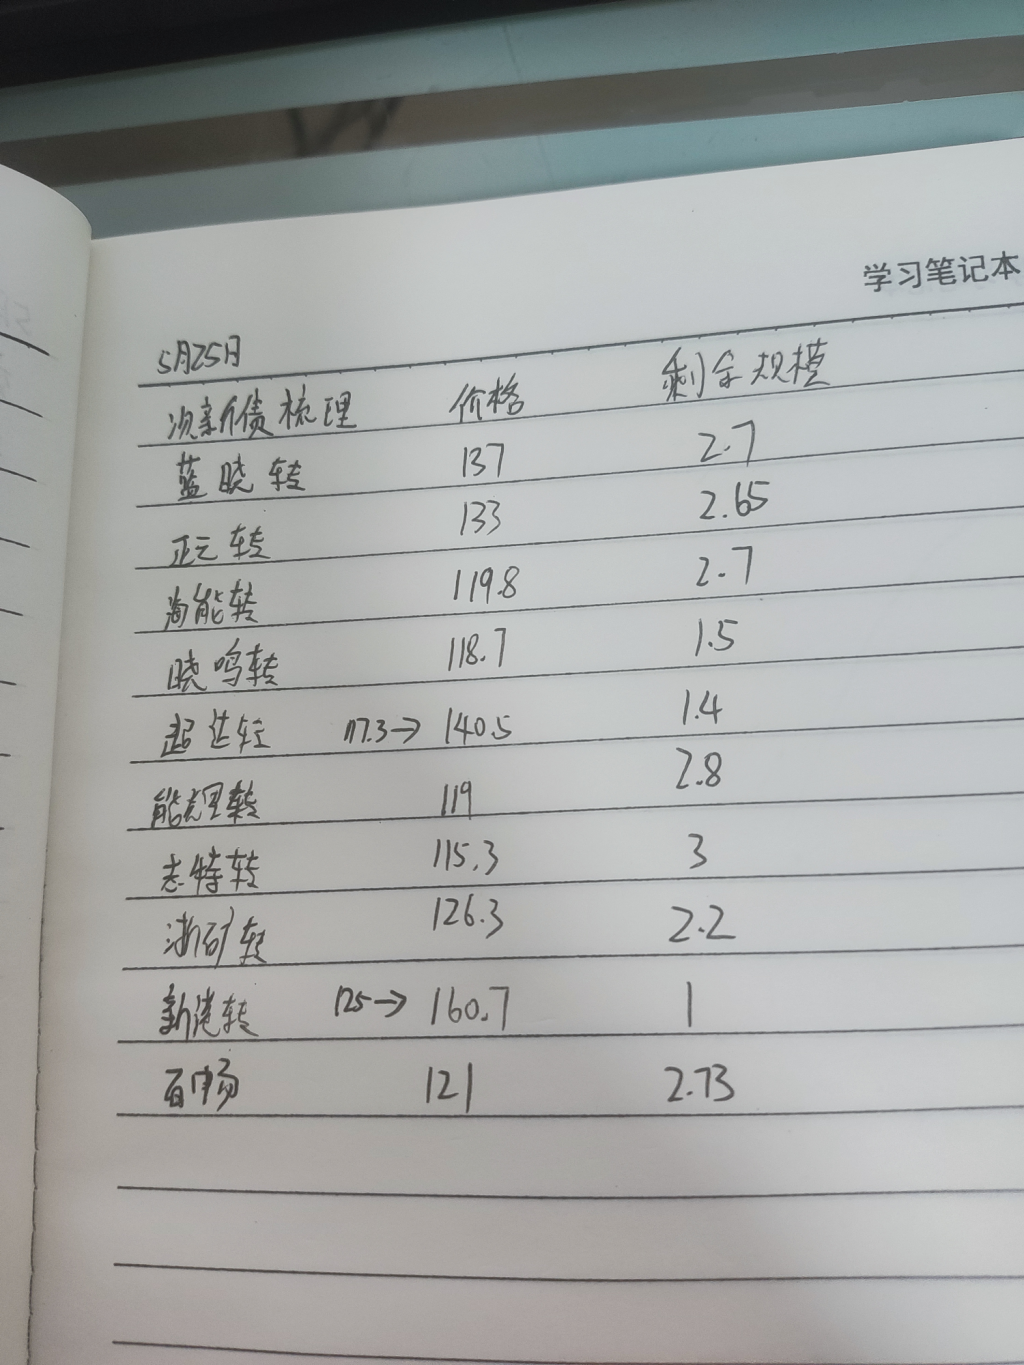 学习笔记本
5月25日
次新债梳理 价格 剩余规模
蓝晓转 137 2.7
正元转 133 2.65
海能转 119.8 2.7
晓鸣转 118.7 1.5
超达转 117.3→140.5 1.4
能辉转 119 2.8
志特转 115.3 3
浙矿转 126.3 2.2
新港转 125→160.7 1
百畅 121 2.73